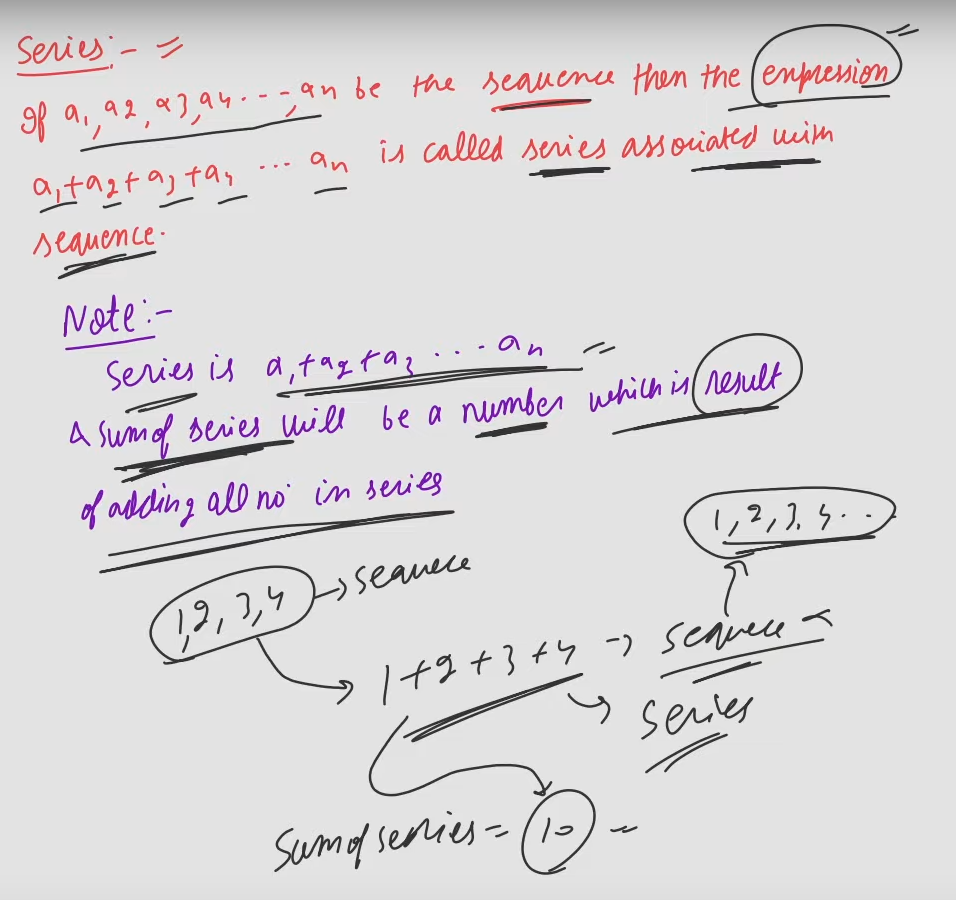 Series:-
If a1, a2, a3, a4 ---, an be the sequence then the expression
a1+a2+a3+a4 ... an is called series associated with
sequence.
Note:-
Series is a1+a2+a3 ... an
& sum of series will be a number which is result
of adding all no in series
1,2,3,4 → sequece
1, 2, 3, 4 ..
1+2+3+4 → sequece
series
Sum of series = 10